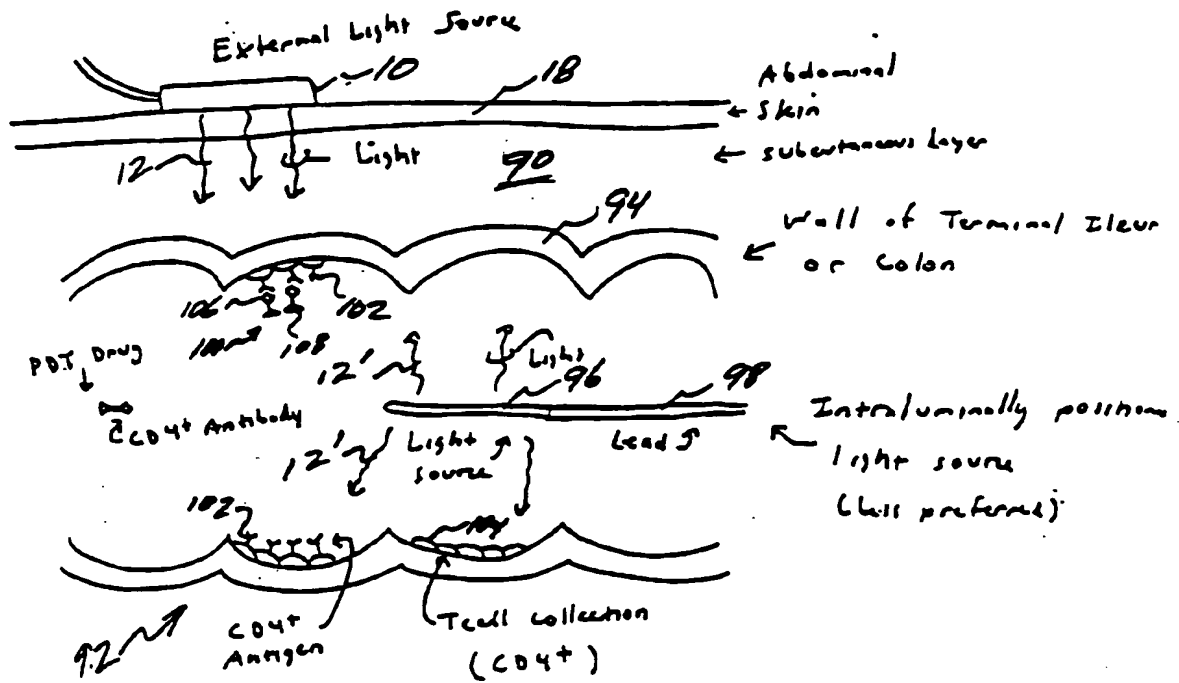 External Light Source
10
18
Abdominal
Skin
subcutaneous Layer
12
Light
90
94
Wall of Terminal Ileum
or Colon
106
102
100
108
PDT Drug
12'
Light
96
98
CD4+ Antibody
12'
Light
source
Lead
Intraluminally position
light source
(less preferred)
102
104
92
CD4+
Antigen
Tcell collection
(CD4+)